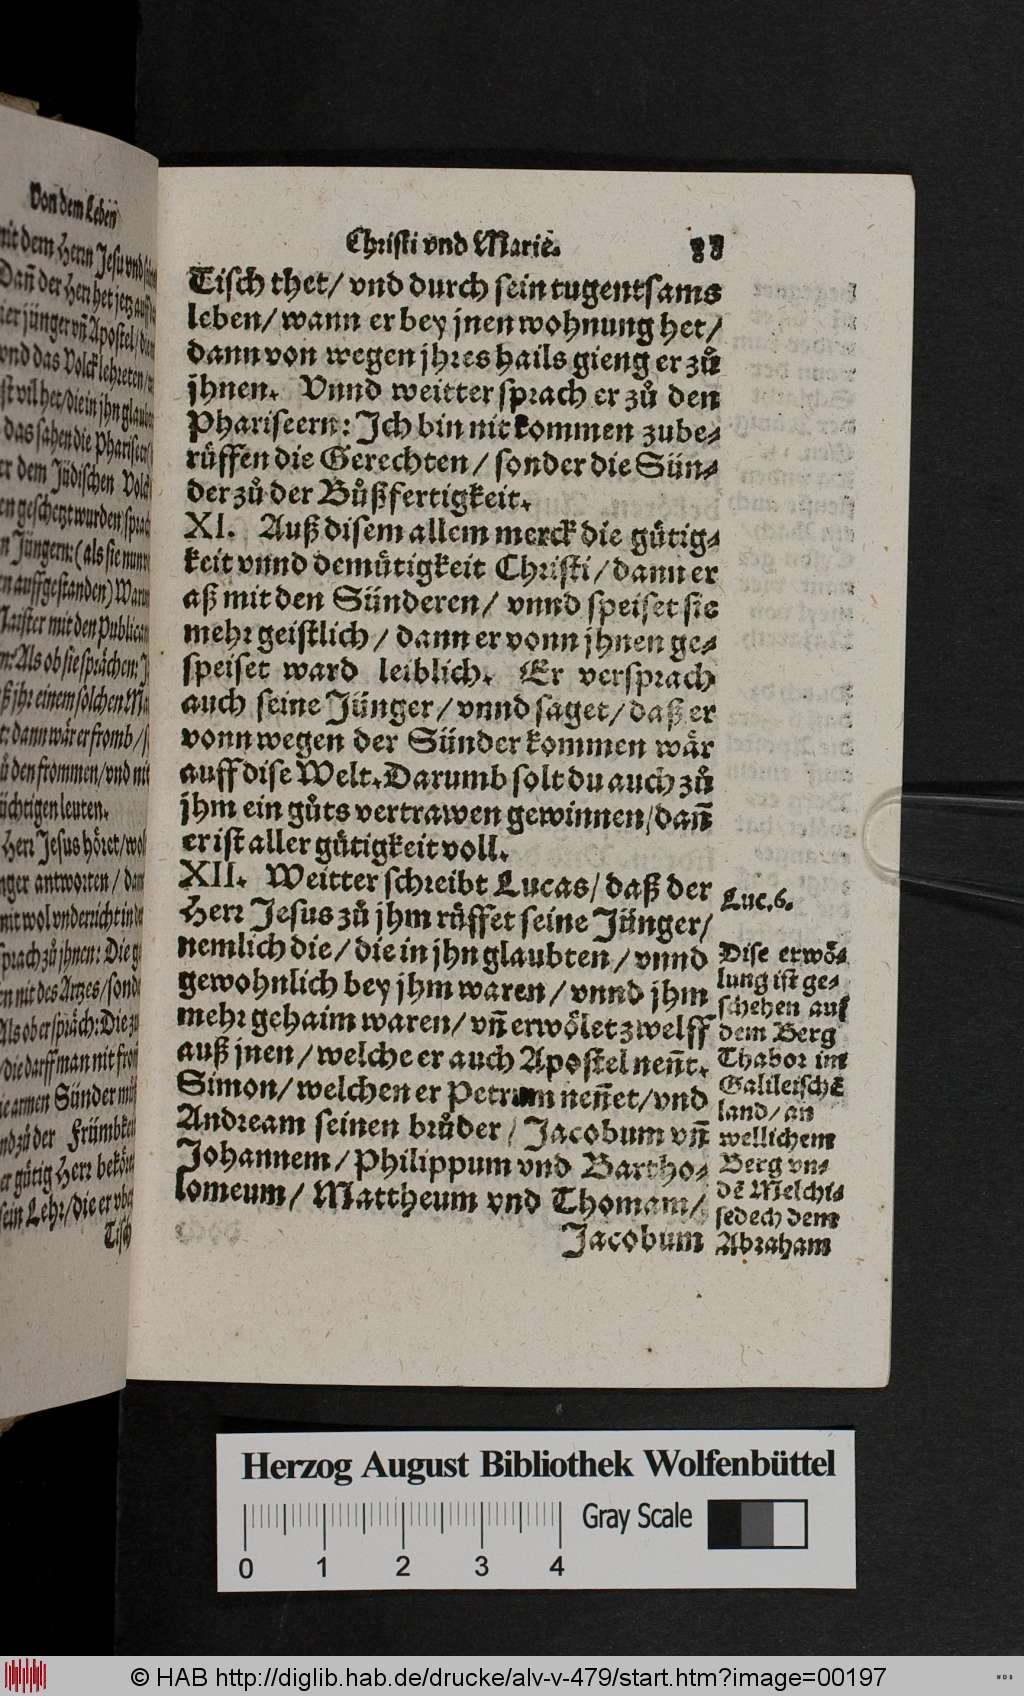 Von dem Leben
mit dem Herrn Jesu vnd
Dañ der Herr het jetz auff
jünger vñ Apostel / die
vnd das Volck lehreten /
vil het / die in jhn glaub
das sahen die Phariseer
dem Jüdischen Volck
geschetzt wurden / sprach
Jüngern: (als sie nun
auffgestanden) Warum
Maister mit den Publican
Als ob sie sprächen:
jhr einem solchen
dann wär er fromb /
den frommen / vnd mit
leuten.
Herr Jesus höret /
antworten /
mit wol vnderricht in
sprach zů jhnen: Die
nit des Artzes / sonder
Als ob er spräch: Die
die darff man nit
armen Sünder
der Frümbkeit
gütig Herr
sein Lehr / die er
Tisch
Christi vnd Marie. 88
Tisch thet / vnd durch sein tugentsams
leben / wann er bey jnen wohnung het /
dann von wegen jhres hails gieng er zů
jhnen. Vnnd weitter sprach er zů den
Phariseern: Ich bin nit kommen zube-
rüffen die Gerechten / sonder die Sün-
der zů der Bůßfertigkeit.
XI. Auß disem allem merck die gütig-
keit vnnd demütigkeit Christi / dann er
aß mit den Sünderen / vnnd speiset sie
mehr geistlich / dann er vonn jhnen ge-
speiset ward leiblich. Er versprach
auch seine Jünger / vnnd saget / daß er
vonn wegen der Sünder kommen wär
auff dise Welt. Darumb solt du auch zů
jhm ein gůts vertrawen gewinnen / dañ
er ist aller gütigkeit voll.
XII. Weitter schreibt Lucas / daß der
Herr Jesus zů jhm rüffet seine Jünger /
nemlich die / die in jhn glaubten / vnnd
gewohnlich bey jhm waren / vnnd jhm
mehr gehaim waren / vñ erwölet zwelff
auß jnen / welche er auch Apostel neñt.
Simon / welchen er Petrum neñet / vnd
Andream seinen brůder / Jacobum vñ
Johannem / Philippum vnd Bartho-
lomeum / Mattheum vnd Thomam /
Jacobum
Luc. 6.
Dise erwö-
lung ist ge-
schehen auf
dem Berg
Thabor im
Galileischē
land / an
wellichem
Berg vn-
dē Melchi-
sedech dem
Abraham
Herzog August Bibliothek Wolfenbüttel
0 1 2 3 4
Gray Scale
© HAB http://diglib.hab.de/drucke/alv-v-479/start.htm?image=00197